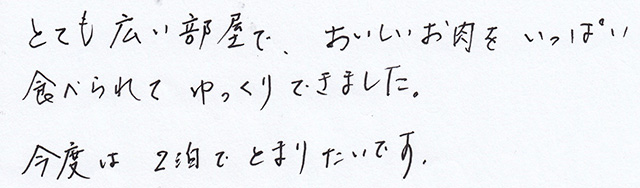 とても広い部屋で、おいしいお肉をいっぱい
食べられてゆっくりできました。
今度は2泊でとまりたいです.